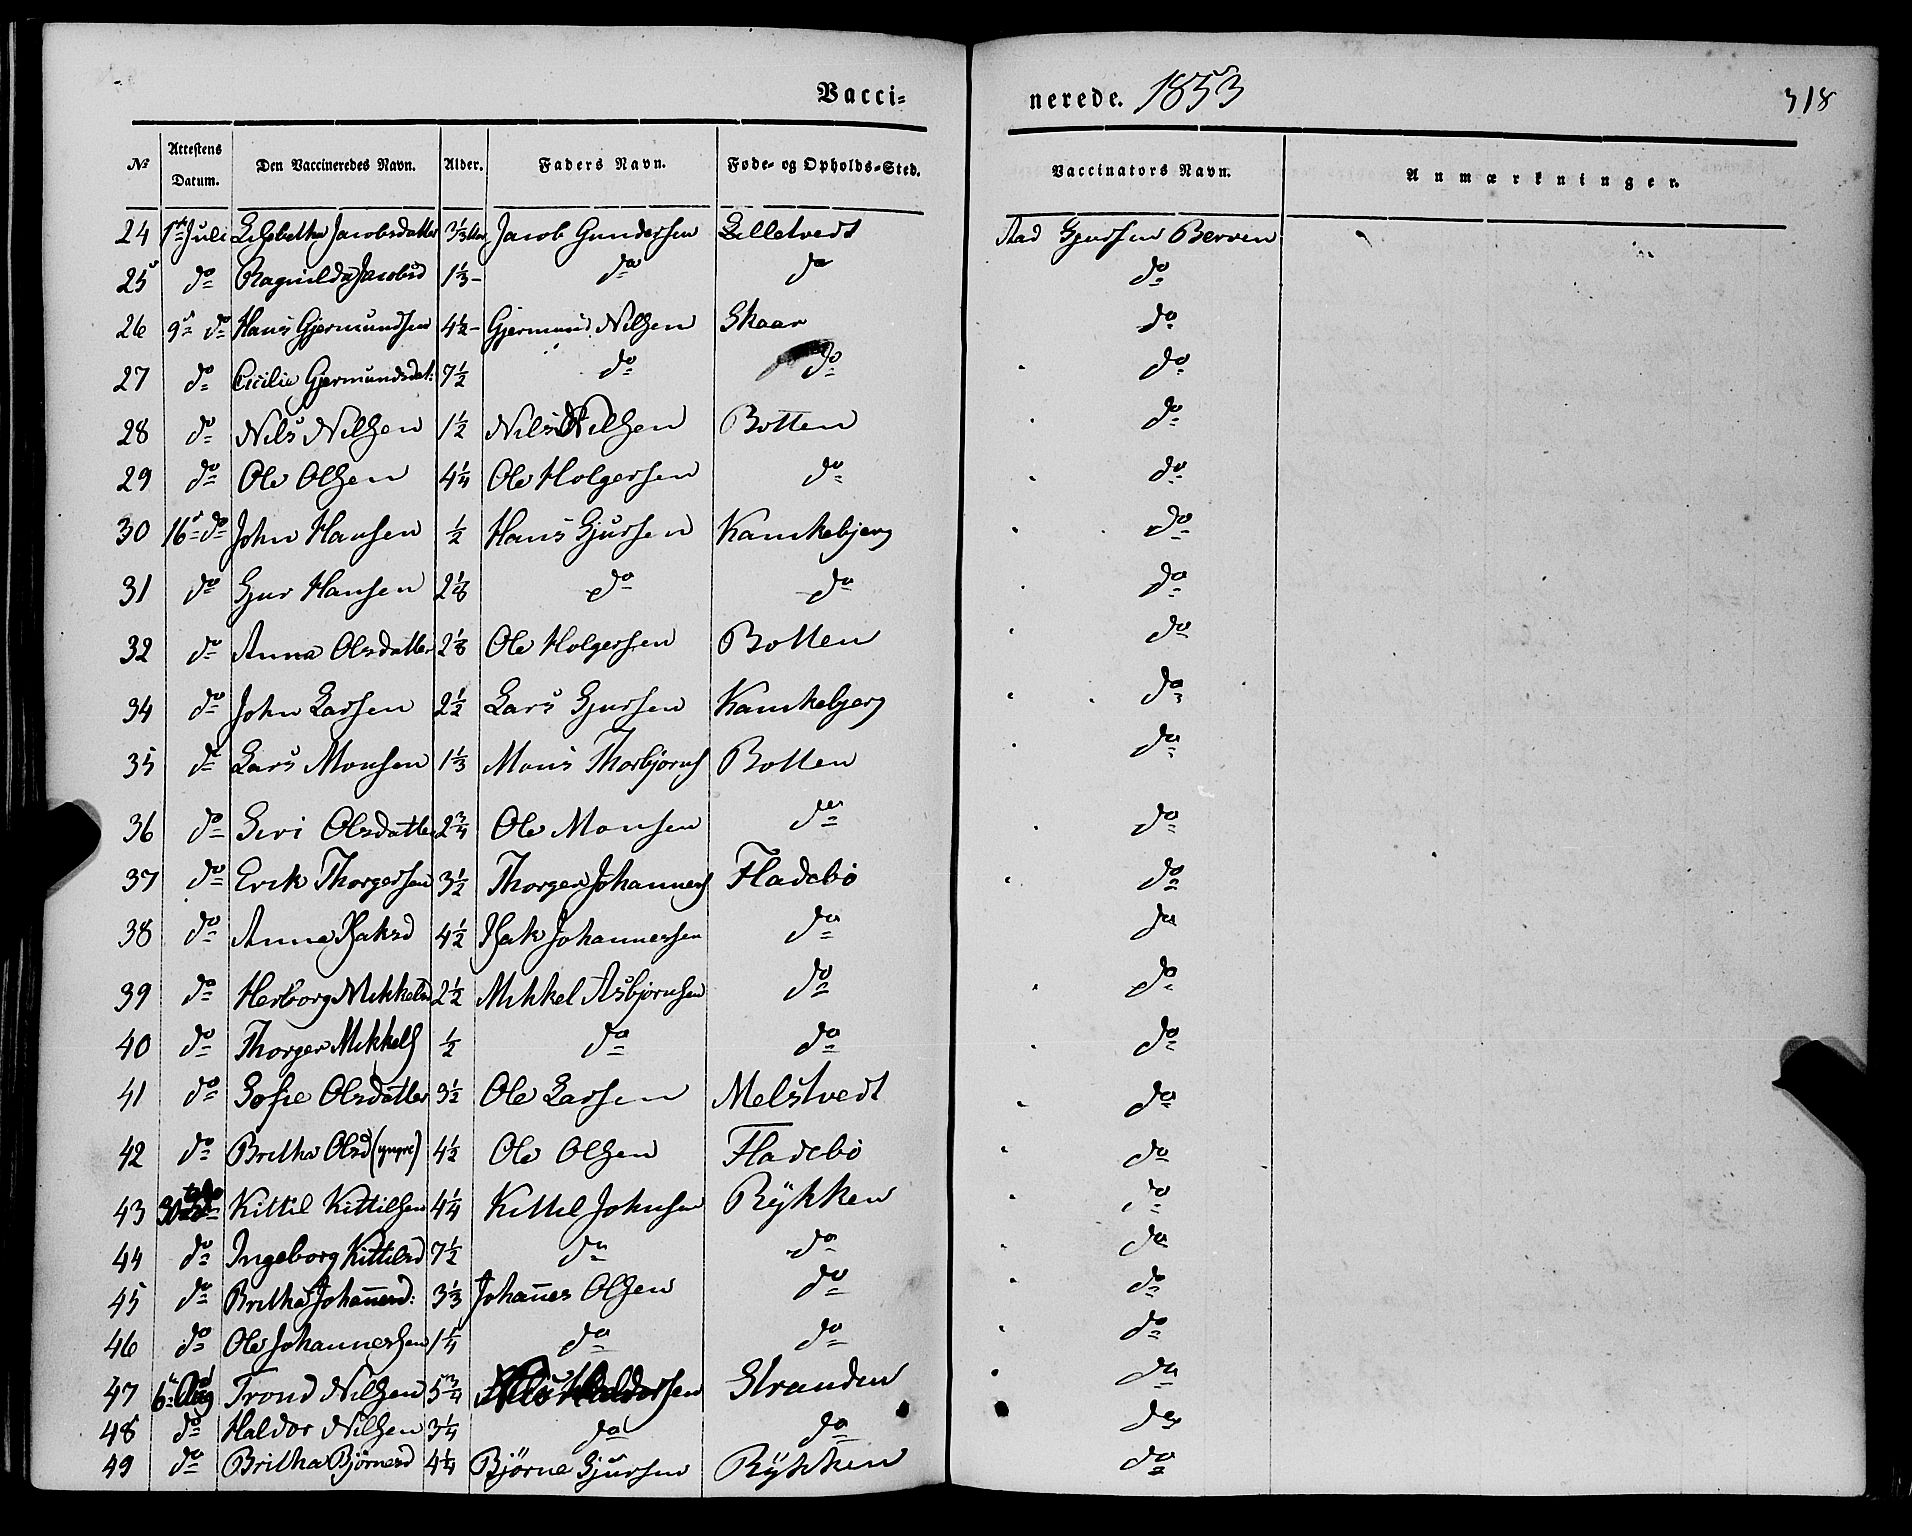 Vacci-nerede. 1853 318
№ Attestens Datum. Den Vaccineredes Navn. Alder. Faders Navn. Føde- og Opholds-Sted. Vaccinators Navn. Anmærkninger.
24 1ste Juli Lisbetha Jacobsdatter 3⅓ Jacob Gundersen Lilletvedt Aad Gjursen Berven
25 do Ragnilda Jacobsd 1⅓ - do do do
26 9de do Hans Gjermundsen 4½ - Gjermund Nilsen Skaar do
27 do Cicilie Gjermundsdat: 7½ do do do
28 do Nils Nilsen 1½ Nils Nilsen Botten do
29 do Ole Olsen 4¼ Ole Holgersen do do
30 16de do John Hansen ½ Hans Gjursen Kankebjerg do
31 do Gjur Hansen 2⅛ do do do
32 do Anna Olsdatter 2⅛ Ole Holgersen Botten do
34 do John Larsen 2½ Lars Gjursen Kankebjerg do
35 do Lars Monsen 1⅓ Mons Thorbjörns Botten do
36 do Siri Olsdatter 2¾ Ole Monsen do do
37 do Erik Thorgersen 3½ Thorger Johannes Fladebö do
38 do Anna Isaksd 4½ Isak Johannessen do do
39 do Herborg Mikkelsd 2½ Mikkel Asbjørnsen do do
40 do Thorger Mikkels ½ do do do
41 do Sofie Olsdatter 3½ Ole Larsen Melstvedt do
42 do Britha Olsd (yngre) 4½ Ole Olsen Fladebö do
43 30 do Kittil Kittilsen 4¼ Kittel Johnsen Rÿkken do
44 do Ingeborg Kittilsd 7½ do do do
45 do Britha Johannesd: 3⅓ Johannes Olsen do do
46 do Ole Johannessen 1¼ do do do
47 6te Aug Trond Nilsen 5¾ Nils Haldorsen Stranden do
48 do Haldor Nilsen 3¼ do do do
49 do Britha Bjørnesd 4¼ Bjørne Gjursen Rÿkken do